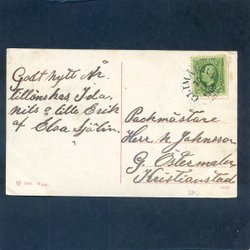 Godt nytt År
tillönskas Ida,
Nils & lille Erik
af Elsa Sjölin.
Packmästare
Herr N Johnsson
G. Östermalm
Kristianstad